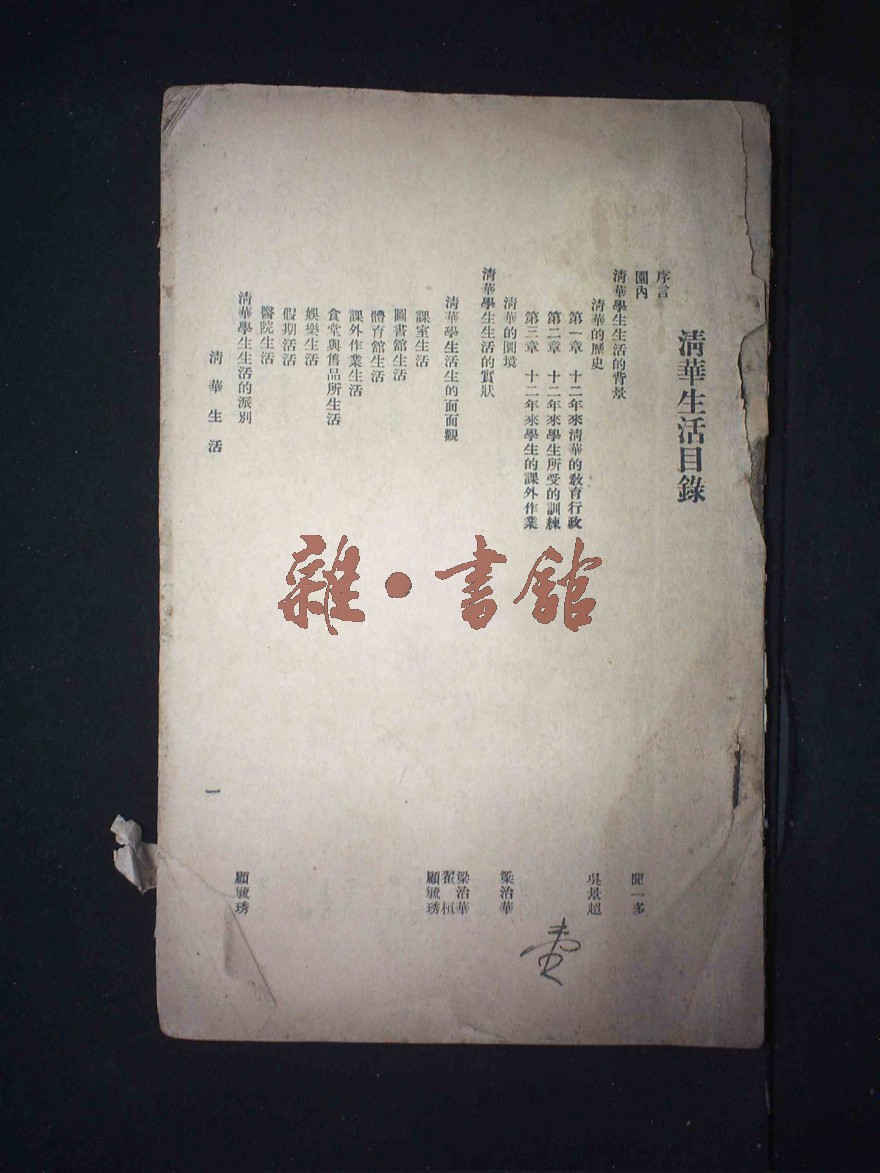 清華生活目錄
序言
園內 聞一多
清華學生生活的背景
清華的歷史 吳景超
第一章 十二年來清華的教育行政
第二章 十二年來學生所受的訓練
第三章 十二年來學生的課外作業
清華的園境 梁治華
清華學生生活的實狀
清華學生活生的面面觀 梁治華 翟桓 顧毓琇
課室生活
圖書館生活
體育館生活
課外作業生活
食堂與售品所生活
娛樂生活
假期活活
醫院生活
清華學生生活的派別 顧毓琇
清華生活 一
雜·書館